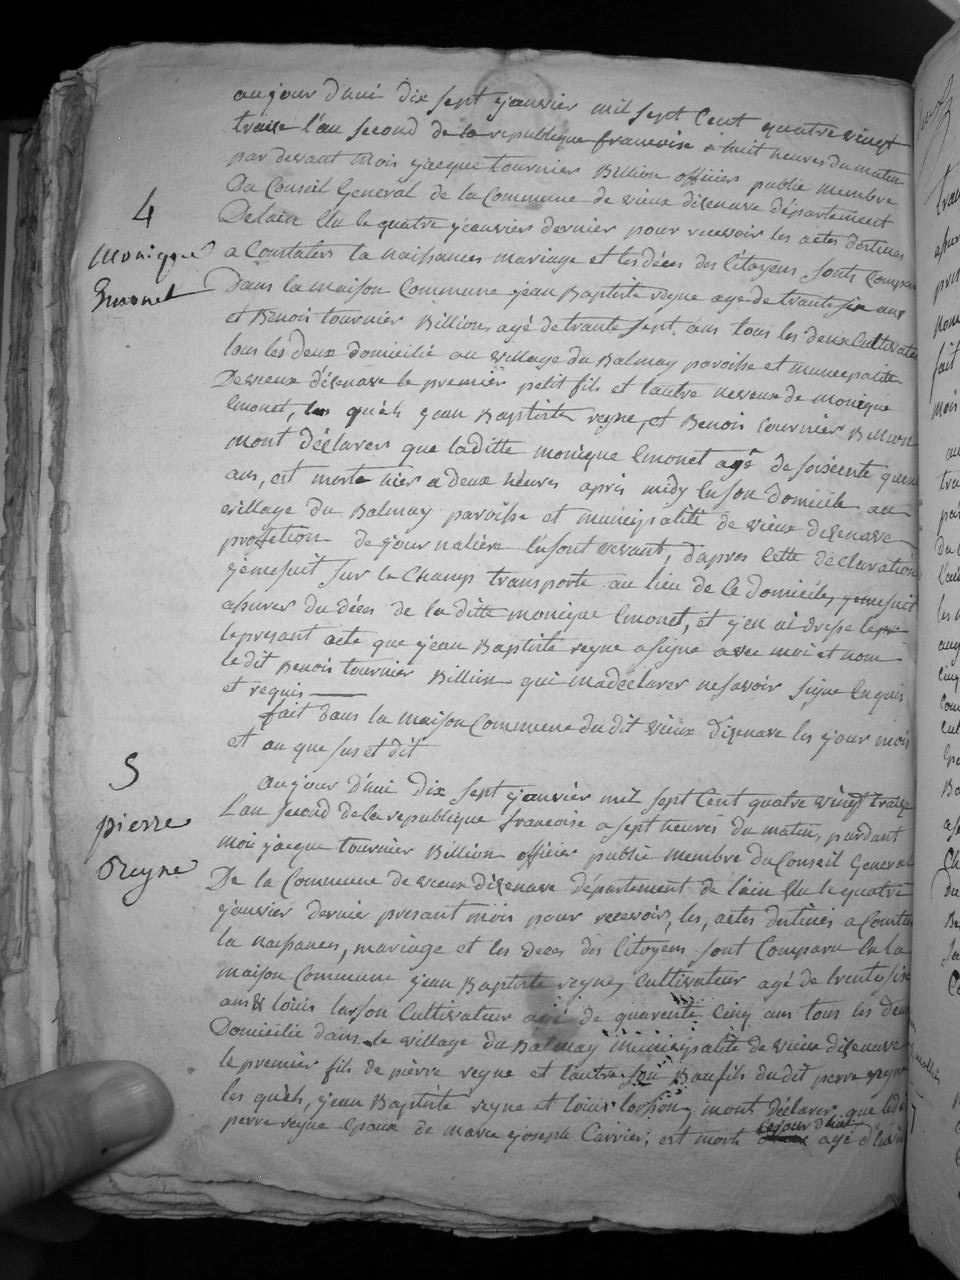 aujour d'hui dix sept janvier mil sept Cent quatre vingt
traize l'an second de la republique francoise a huit heures du matin
par devant Moi jacque tournier Billion officier public membre
Du Conseil General de la Commune de vieux disenave département
Delain Elu le quatre janvier dernier pour recevoir les actes destines
4
Monique
Emonet
a Constater la naissances mariage et les déces des Citoyens sont Compar
Dans la maison Commune jean Baptiste reyne age de trante six ans
et Benoit tournier Billion agé de trante sept ans tous les deux Cultivate
tous les deux domicilié au village du Balmay paroisse et municipalité
De vieux disenave le premier petit fils et l'autre neveux de monique
Emonet, les quels jean Baptiste reyne, et Benoit tournier Billion
mont déclarer que laditte monique Emonet agé de soiscente quen
ans, est morte hier a deux heures apris midy En son domicile au
village du Balmay paroisse et municipalité de vieux disenave
profetion de journalière En sont vivant, dapres Cette déclaration
je me suit sur le Champ transporte au lieu de Ce domicile, je me suit
assurer du déces de la ditte monique Emonet, et j'en ai dresse le pre
le presant acte que jean Baptiste reyne a signe avec moi et nom
le dit Benoit tournier Billion qui ma déclarer ne savoir signe En quis
et requis
fait dans la maison Commune du dit vieux disenave les jour mois
et an que sus et dit
5
pierre
Reyne
aujour d'hui dix sept janvier mil sept Cent quatre vingt traize
L'an second de la republique francoise a sept heures du matin, pardant
moi jacque tournier Billion officier public membre du Conseil General
De la Commune de vieux disenave département de l'ain Elu le quatre
janvier dernier presant mois pour recevoir les, actes destines a Consta
la naissances, mariage et les deces des Citoyens sont Comparu En la
maison Commune jean Baptiste reyne, Cultivateur agé de trente six
ans & louis larson Cultivateur agé de quarente Cinq ans tous les deux
Domicilié dans le village du Balmay municipalité de vieux disenave
le premier fils de pierre reyne et l'autre son Baufils du dit pierre reyne
les quels, jean Baptiste reyne et louis larson, mont déclarer que led
ce jour d'hui
pierre reyne Epoux de marie joseph Carrier, est mort agé d'Env